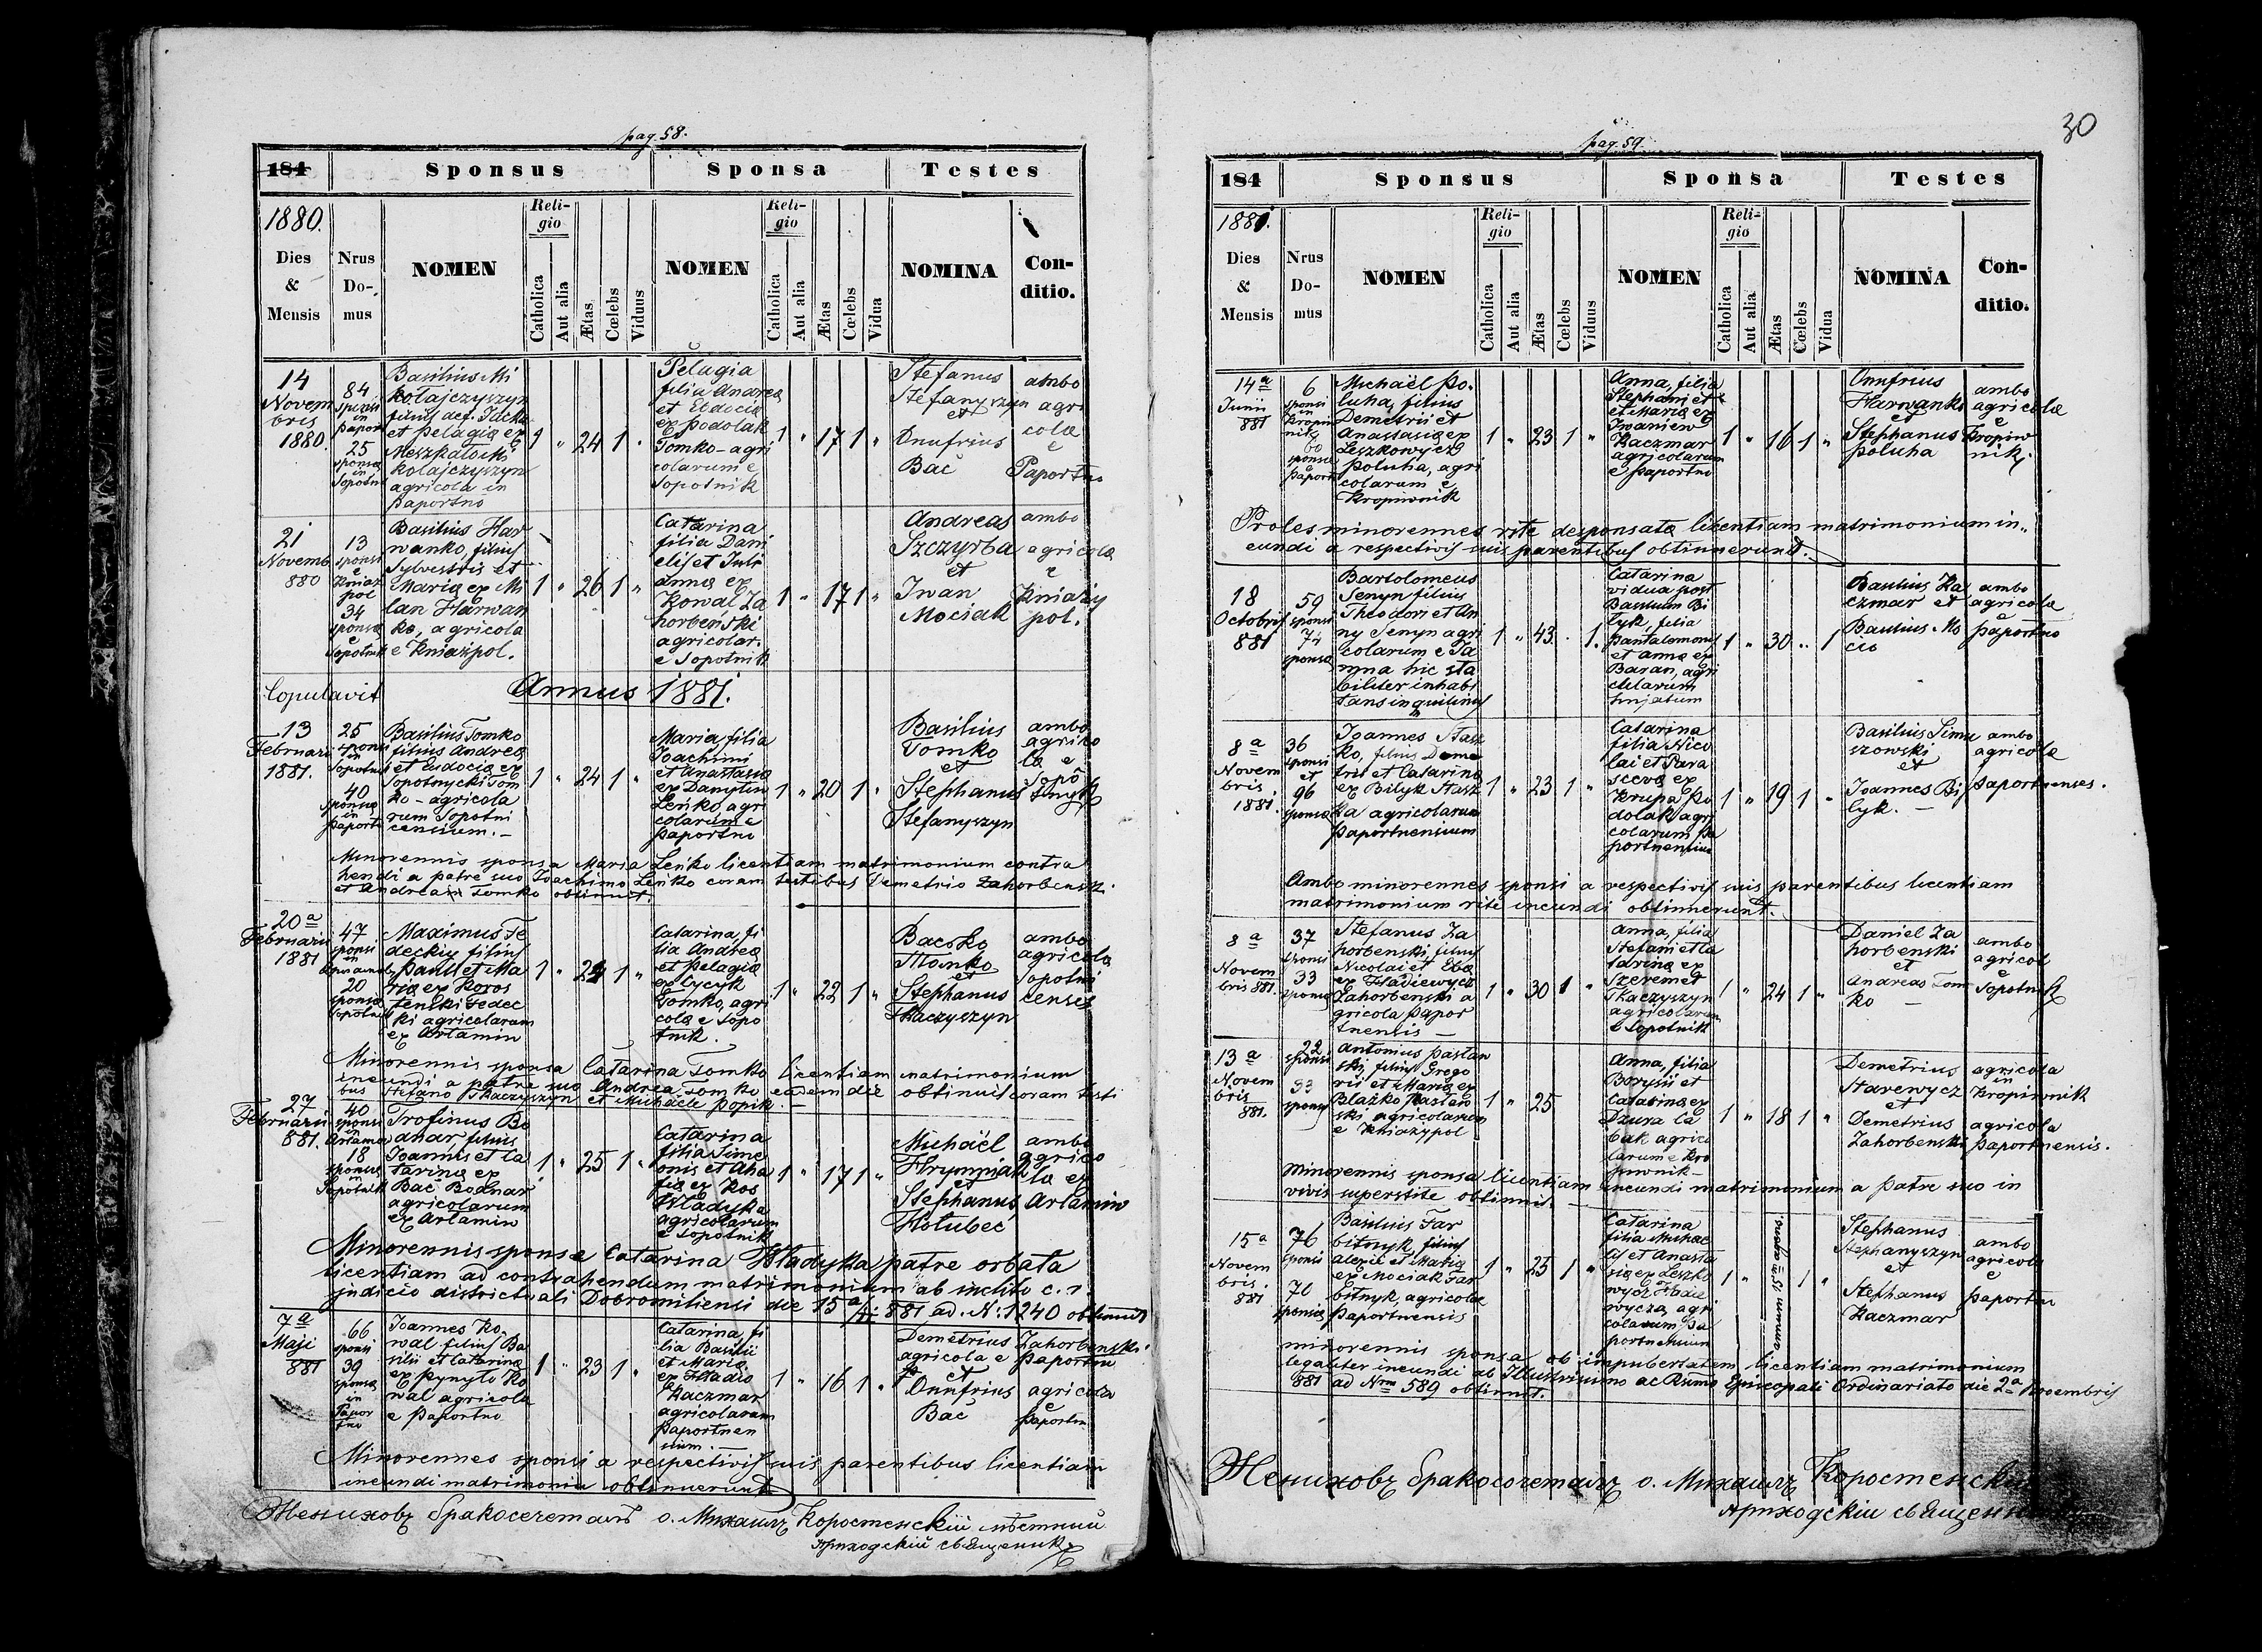 pag. 58.
184 Sponsus Sponsa Testes
1880.
Dies & Mensis
Nrus Do- mus
NOMEN
Reli- gio
Catholica
Aut alia
Ætas
Cœlebs
Viduus
NOMEN
Reli- gio
Catholica
Aut alia
Ætas
Cœlebs
Vidua
NOMINA
Con- ditio.
14
Novem
bris
1880.
84
sponsi
in
Paport
25
sponsæ
in
Sopotnik
Basilius Mi
kołajczyszyn
filius def.
et Pelagiæ ex
Mi
kołajczyszyn
agricola in
Paportno
1 " 24 1 "
Pelagia
filia Andreæ
et Eudociæ
ex Podolak
Tomko - agri
colarum e
Sopotnik
1 " 17 1 "
Stefanus
Stefanyszyn
et
Onufrius
Bać
ambo
agri
colæ
e
Paportno
21
Novemb
880
13
sponsi
e
Kniaż
pol
34
sponsæ
e
Sopotnik
Basilius Har
wanko, filius
Sylvestris et
Mariæ ex Mi
lan Harwan
ko, agricola
e Kniażpol.
1 " 26 1 "
Catarina
filia Dani
elis et Juli
annæ ex
Kowal Za
horbenski
agricolar.
e Sopotnik
1 " 17 1 "
Andreas
Szczyrba
et
Iwan
Mociak
ambo
agricolæ
e
Kniaży
pol.
Copulavit Annus 1881.
13
Februarii
1881.
25
sponsi
in
Sopotnik
40
sponsæ
in
Paport
Basilius Tomko
filius Andreæ
et Eudociæ ex
Sopotnycki Tom
ko - agricola
rum Sopotni
censium. -
1 " 24 1 "
Maria filia
Joachimi
et Anastasiæ
ex Danylin
Leńko agri
colarum e
Paportno
1 " 20 1 "
Basilius
Tomko
et
Stephanus
Stefanyszyn
ambo
agrico
læ e
Sopo
tnyk
Minorennis sponsa Maria Leńko licentiam matrimonium contra
hendi a patre suo Joachimo Leńko coram testibus Demetrio Zahorbensk.
et Andrea Tomko obtinuit.
20ª
Februarii
1881
47
sponsi
in
20
sponsæ
Sopotnik
Maximus Fe
deckiy filius
Pauli et Ma
riæ ex Koros
tenski Fedec
ki agricolarum
ex Artamin
1 " 24 1 "
Catarina, fi
lia Andreæ
et Pelagiæ
ex Cycyk
Tomko, agri
colæ e Sopo
tnik.
1 " 22 1 "
Bacsko
Tomko
et
Stephanus
Tkaczyszyn
ambo
agricolæ
Sopotni
censes
Minorennis sponsa Catarina Tomko licentiam matrimonium
incundi a patre suo Andrea Tomko eadem die obtinuit coram testi
bus Stefano Tkaczyszyn et Michaele Popik. -
27
Februarii
881.
40
sponsi
in
Artamow
18
sponsæ
in
Sopotnik
Trofinus Bo
dnar filius
Joannis et Ca
tarinæ ex
Bać Bodnar
agricolarum
ex Artamin
1 " 25 1 "
Catarina
filia Sime
onis et Aha
fiæ ex Kos
Władyka
agricolarum
e Sopotnik
1 " 17 1 "
Michaël
Hrymniak
et
Stephanus
Hołubec
ambo
agrico
læ ex
Artamin
Minorennis sponsæ Catarina Władyka patre orbata
licentiam ad contrahendum matrimonium ab inclito c. r.
judicio districtuali Dobromiliensi die 15ª 881 ad. N: 1240 obtinuit
7ª
Maji
881
66
sponsi
39
sponsæ
in
Papor
tno
Joannes Ko.
wal filius Ba
silii et Catarinæ
ex Pynyło Ko
wal agricola
e Paportno
1 " 23 1 "
Catarina, fi
lia Basilii
et Mariæ
ex Hladio
Kaczmar
agricolarum
Paportnen
sium. -
1 " 16 1 "
Demetrius Zahorbenski.
agricola e Paportno
et
Onufrius agricola
Bać e
Paportn
Minorennes sponsi a respectivis suis parentibus licentiam
incundi matrimonii obtinuerunt
Жениховъ бракосочеталъ о. Михаилъ Коростенскій мѣстный
приходскій священикъ
30
pag. 59.
184 Sponsus Sponsa Testes
1881.
Dies & Mensis
Nrus Do- mus
NOMEN
Reli- gio
Catholica
Aut alia
Ætas
Cœlebs
Viduus
NOMEN
Reli- gio
Catholica
Aut alia
Ætas
Cœlebs
Vidua
NOMINA
Con- ditio.
14ª
Junii
881
6
sponsi
in
Kropiw
nik
60
sponsæ
e
Paport
Michaël Po.
luha, filius
Demetrii et
Anastasiæ ex
Leszkowycz
Poluha, agri
colarum e
Kropiwnik
1 " 23 1 "
Anna, filia
Stephani et
et Mariæ ex
Iwaniew
Kaczmar
agricolarum
e Paportno
1 " 16 1 "
Onufrius
Harwanko
et
Stephanus
Poluha
ambo
agricolæ
e
Kropiw
nik
Proles minorennes rite desponsatæ licentiam matrimonium in..
eundi a respectivis suis parentibus obtinuerunt.
18
Octobris
881
59
sponsi
74
sponsæ
Bartolomeus
Senyn filius
Theodori et An
ny Senyn agri
colarum e Ja
mna hic sta
biliter inhabi
tans inquilinus
1 " 43. . 1.
Catarina
vidua post
Basilium Bi
lyk, filia
Pantalomonis
et Annæ ex
Baran, agri
colarum
1 " 30 " 1
Basilius Ka
czmar et
Basilius Mo
cio
ambo
agricolæ
e
Paportno
8ª
Novem
bris.
1881.
36
sponsi
et
96
sponsæ
Joannes Stasz
ko, filius Deme
trii et Catarinæ
ex Bilyk Stasz
ka agricolarum
Paportnensium
1 " 23 1 "
Catarina
filia Nico
lai et Para
scevæ ex
Krupa Po
dolak agri
colarum Pa
portnensium
1 " 19 1 "
Basilius Simu
szowski
et
Joannes Bi
lyk. -
ambo
agricolæ
Paportnenses.
Ambo minorennes sponsi a respectivis suis parentibus licentiam
matrimonium rite incundi obtinuerunt.
8ª
Novem
bris 881.
37
sponsi
33
sponsæ
Stefanus Za
horbenski, filius
Nicolai et Evæ
ex Hładiewycz
Zahorbenski a
gricola Papor
tnensis -
1 " 30 1 "
Anna, filia
Stefani et Ca
tarinæ ex
Szeremet
Tkaczyszyn
agricolarum
e Sopotnik
1 " 24 1 "
Daniel Za
horbenski
et
Andreas Tom
ko -
ambo
agricol
e
Sopotnik
13ª
Novem
bris
881.
22
sponsi
33
sponsæ
Antonius Pastaw
ski, filius Grego
rii et Mariæ ex
Blażko Pastaw
ski agricolarum
e Kniażypol
1 " 25
Anna, filia
Borysii et
Catarinæ ex
Dzura Ca
bak agrico
larum e Kro
piwnik -
1 " 18 1 "
Demetrius
Starewycz
et
Demetrius
Zahorbenski
agricola
in
Kropiwnik
agricola
Paportnensis.
Minorennis sponsa licentiam incundi matrimonium a patre suo in
vivis superstite obtinuit. -
15ª
Novem
bris.
881
76
sponsi
70
sponsæ
Basilius Far
bitnyk, filius
Alexii et Mariæ
ex Mociak Far
bitnyk, agricolæ
Paportnensis
1 " 25 1 "
Catarina
filia Michae
lis et Anasta
siæ ex Leszko
wycz Hładie
wycza, agri
colarum Pa
portnensium
1 " 1 "
Stephanus
Stephanyszyn
et
Stephanus
Kaczmar
ambo
agricolæ
e
Paportn
minorennis sponsa ob impubertatem licentiam matrimonium
legaliter incundi ab Illustrissimo ac Rssmo Episcopali Ordinariato die 2ª Novembris
881 ad Nrm 589 obtinuit.
Жениховъ бракосочеталъ о. Михаилъ Коростенскій
приходскій священникъ